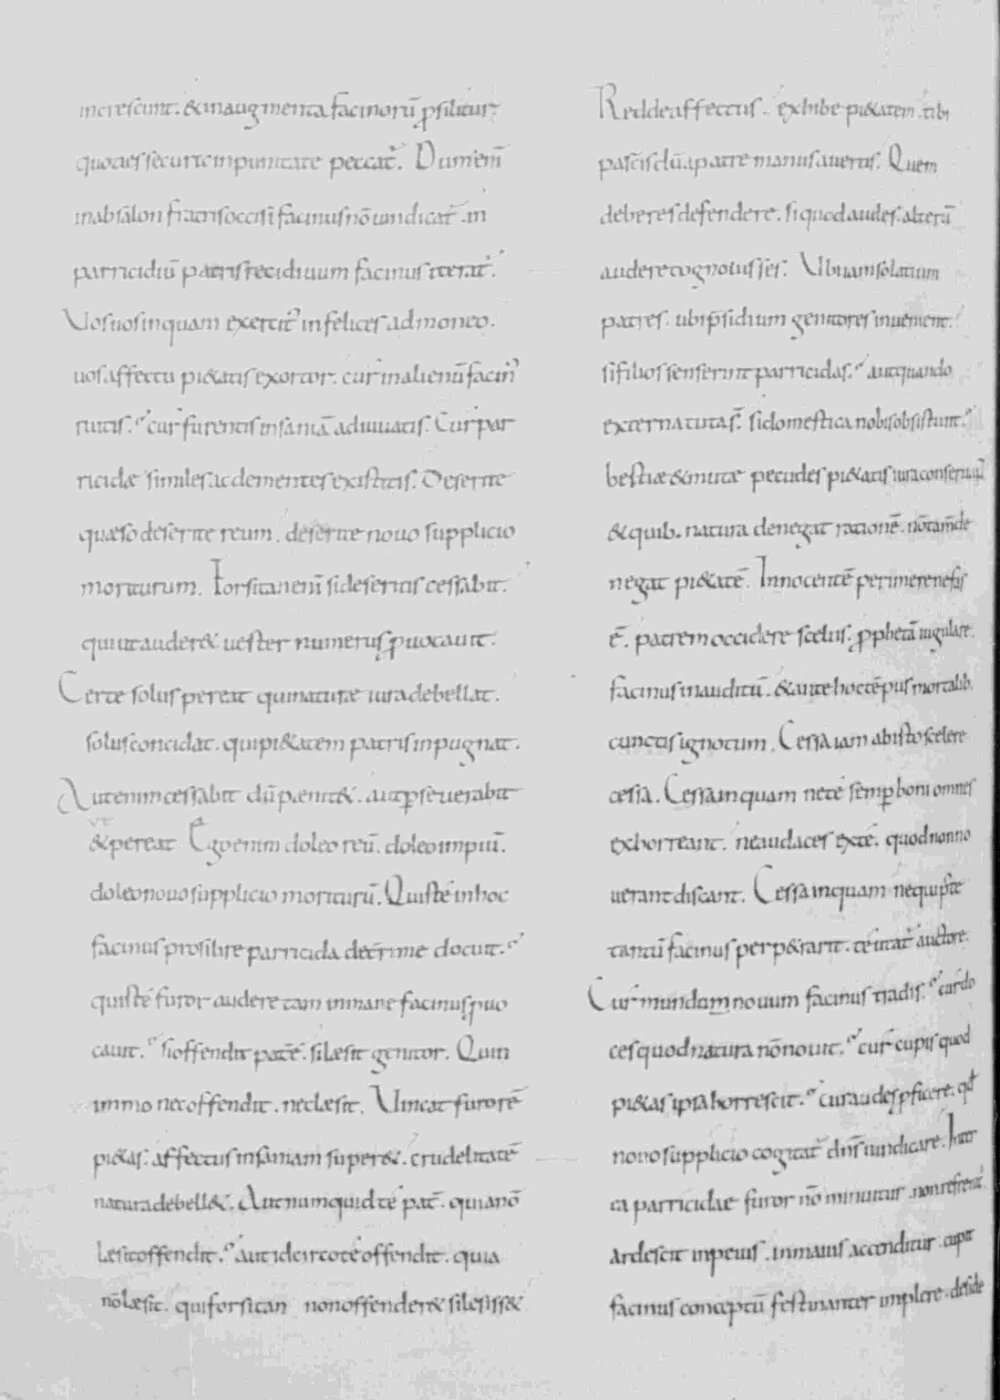 increscunt. & in augmenta facinorū ꝓsilitur.
quoties securte inpunitate peccat̄. Dum eni᷎m
in absalon fratris occisi facinus nō uindicat̄. in
parricidiū patris recidiuum facinus iterat̄.
Vos uos inquam exercit᷎ infelices admoneo.
uos affectu pi&atis exortor. cur in alienū facin᷎
ruitis. cur furentis insaniā adiuuatis. Cur par
ricidæ similes. ac dementes existitis. Deserite
quæso deserite reum. deserite nouo supplicio
moriturum. Forsitan enī si deseritis cessabit.
qui ut auder& uester numerus ꝓuocauit.
Certe solus pereat qui naturæ iura debellat.
solus concidat. qui pi&atem patris inpugnat.
Aut enim cessabit dū pænit&. aut ꝑseuerabit
ut
& pereat Ego enim doleo reū. doleo impiū.
doleo nouo supplicio moriturū. Quis te in hoc
facinus prosilire parricida decrime docuit.
quis te furor audere tam inmane facinus ꝓuo
cauit. si offendit pat̄e. si læsit genitor. Quin
immo nec offendit. nec læsit. Vincat furorē
pi&as. affectus insaniam super&. crudelitatē
natura debell&. Aut numquid te pat̄. quia nō
læsit offendit. aut idcirco te offendit. quia
nō læsit. qui forsitan non offender& si lesiss&
Redde affectus. exhibe pi&atem. tibi
pascis dū a patre manus auertis. Quem
deberes defendere. si quod audes. alterū
audere cognouisses. Vbi iam solatium
patres. ubi p̄sidium genitores inuenient.
si filios senserint parricidas. aut quando
externa tuta s̄. si domestica nobis obsistunt.
bestiæ & mutæ pecudes pi&atis iura conseruan᷎
& quib. natura denegat rationē. nō tam̄ de
negat pi&atē. Innocentē perimere nefas
ē. patrem occidere scelus. ꝓphetā iugulare.
facinus inauditū. & ante hoc tēpus mortalib.
cunctis ignotum. Cessa iam ab isto scelere
cessa. Cessa inquam ne te semꝑ boni omnes
exhorreant. ne audaces ex te. quod non no
uerant discant. Cessa inquam ne qui p̄ te
tantū facinus perp&rarit. te utat̄ auctore.
Cur mundum nouum facinus tradis. cur do
ces quod natura nō nouit. cur cupis quod
pi&as ipsa horrescit. cur audes ꝑficere. qđ
nouo supplicio cogitat̄ dn̄s uindicare. Inter
ea parricidae furor nō minuitur. non refrenat̄.
ardescit in peius. in maius accenditur. cupit
facinus conceptū festinanter implere. deside